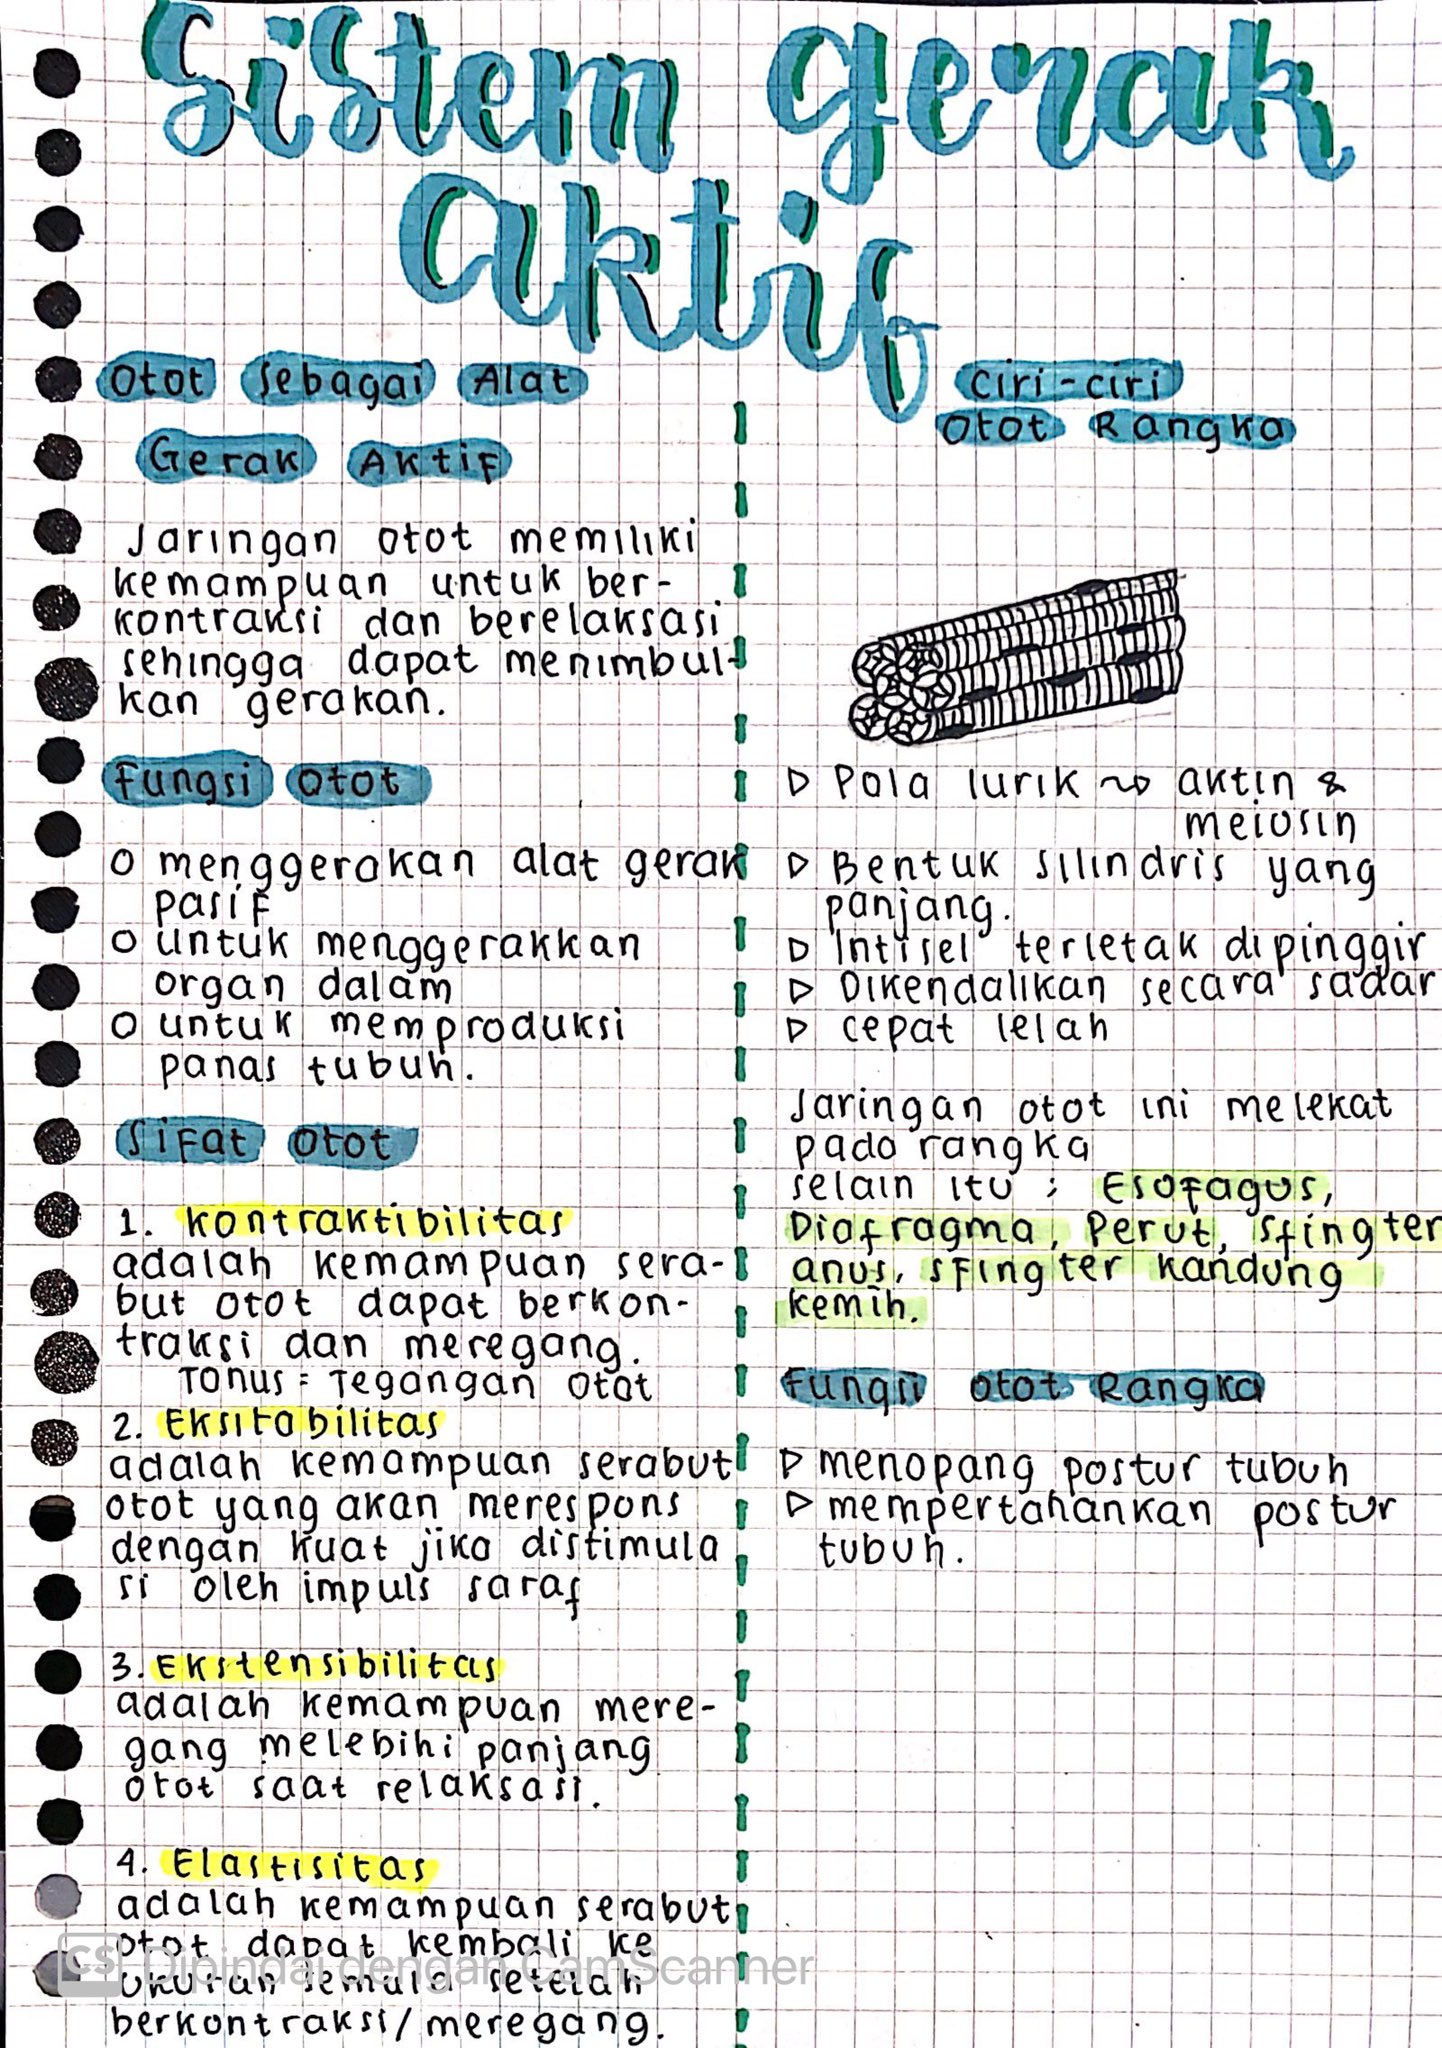 Sistem gerak
aktif
Otot Sebagai Alat
Gerak Aktif
Jaringan otot memiliki
kemampuan untuk ber-
kontraksi dan berelaksasi
sehingga dapat menimbul-
kan gerakan.
Fungsi Otot
O menggerakan alat gerak
pasif
O untuk menggerakkan
organ dalam
O untuk memproduksi
panas tubuh.
Sifat Otot
1. Kontraktibilitas
adalah kemampuan sera-
but otot dapat berkon-
traksi dan meregang.
Tonus = Tegangan Otot
2. Eksitabilitas
adalah kemampuan serabut
otot yang akan merespons
dengan kuat jika distimula
si oleh impuls saraf
3. Ekstensibilitas
adalah kemampuan mere-
gang melebihi panjang
otot saat relaksasi.
4. Elastisitas
adalah kemampuan serabut
otot dapat kembali ke
ukuran semula setelah
berkontraksi/meregang.
Ciri-ciri
Otot Rangka
▷ Pola lurik ⤳ aktin &
meiosin
▷ Bentuk silindris yang
panjang.
▷ Intisel terletak dipinggir
▷ Dikendalikan secara sadar
▷ cepat lelah
Jaringan otot ini melekat
pada rangka
selain itu : Esofagus,
Diafragma, Perut, Sfingter
anus, sfingter kandung
kemih.
Fungsi Otot Rangka
▷ menopang postur tubuh
▷ mempertahankan postur
tubuh.
CS Dipindai dengan CamScanner